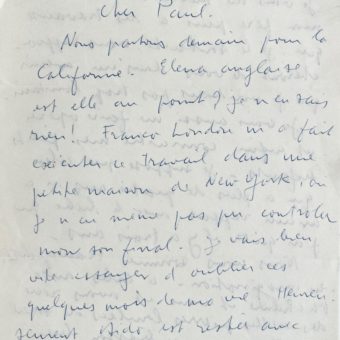 Cher Paul.
Nous partons demain pour la
Californie. Elena anglaise
est elle au point? je n'en sais
rien! Franco London m'a fait
exécuter ce travail dans une
petite maison de New York, où
je n'ai même pas pu contrôler
mon son final. Je vais bien
vite essayer d'oublier ces
quelques mois de ma vie Heureu-
sement est restée avec